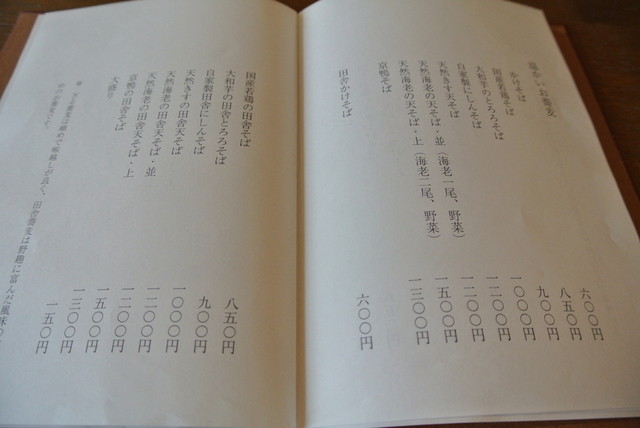 温かいお蕎麦
かけそば 六〇〇円
国産若鶏そば 八五〇円
大和芋のとろろそば 九〇〇円
自家製にしんそば 一〇〇〇円
天然きす天そば 一二〇〇円
天然海老の天そば・並(海老一尾、野菜) 一二〇〇円
天然海老の天そば・上(海老二尾、野菜) 一五〇〇円
京鴨そば 一三〇〇円
田舎かけそば 六〇〇円
国産若鶏の田舎そば 八五〇円
大和芋の田舎とろろそば 九〇〇円
自家製田舎にしんそば 一〇〇〇円
天然きすの田舎天そば 一二〇〇円
天然海老の田舎天そば・並 一二〇〇円
天然海老の田舎天そば・上 一五〇〇円
京鴨の田舎そば 一三〇〇円
大盛り 一五〇円
蕎麦は細めで喉越しが良く、田舎蕎麦は野趣に富んだ風味の